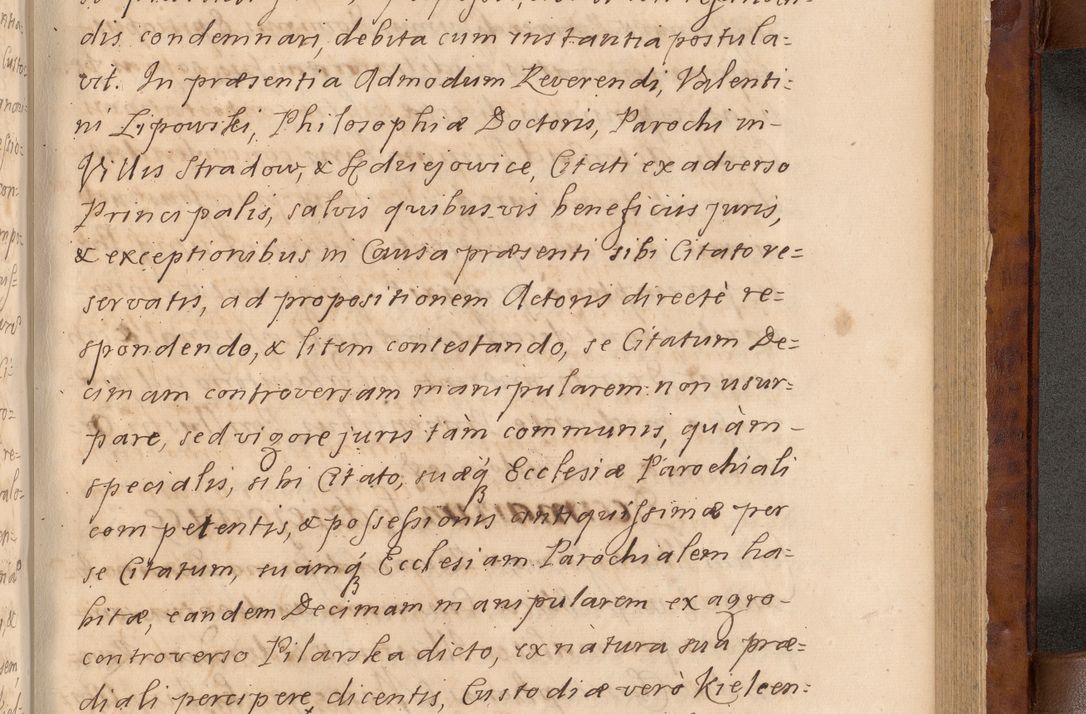 dis condemnari, debita cum instantia postula=
vit. In præsentia Admodum Reverendi, Valenti=
ni Lipowski, Philosophiæ Doctoris, Parochi in-
Villis Stradow, & Sędziejowice, Citati ex adverso
Principalis, salvis quibusvis beneficiis juris,
& exceptionibus in Causa præsenti sibi Citato re=
servatis, ad propositionem Actoris directè re=
spondendo, & litem contestando, se Citatum De=
cimam controversam manipularem non usur=
pare, sed vigore juris tàm communis, quàm-
specialis, sibi Citato, suæq́ Ecclesiæ Parochiali
competentis, & possessionis antiquissimæ per
se Citatum, suamq́ Ecclesiam Parochialem ha=
bitæ, eandem Decimam manipularem ex agro-
controverso Pilarska dicto, ex natura sua præ=
diali percipere dicentis, Custodiæ verò Kielcen=